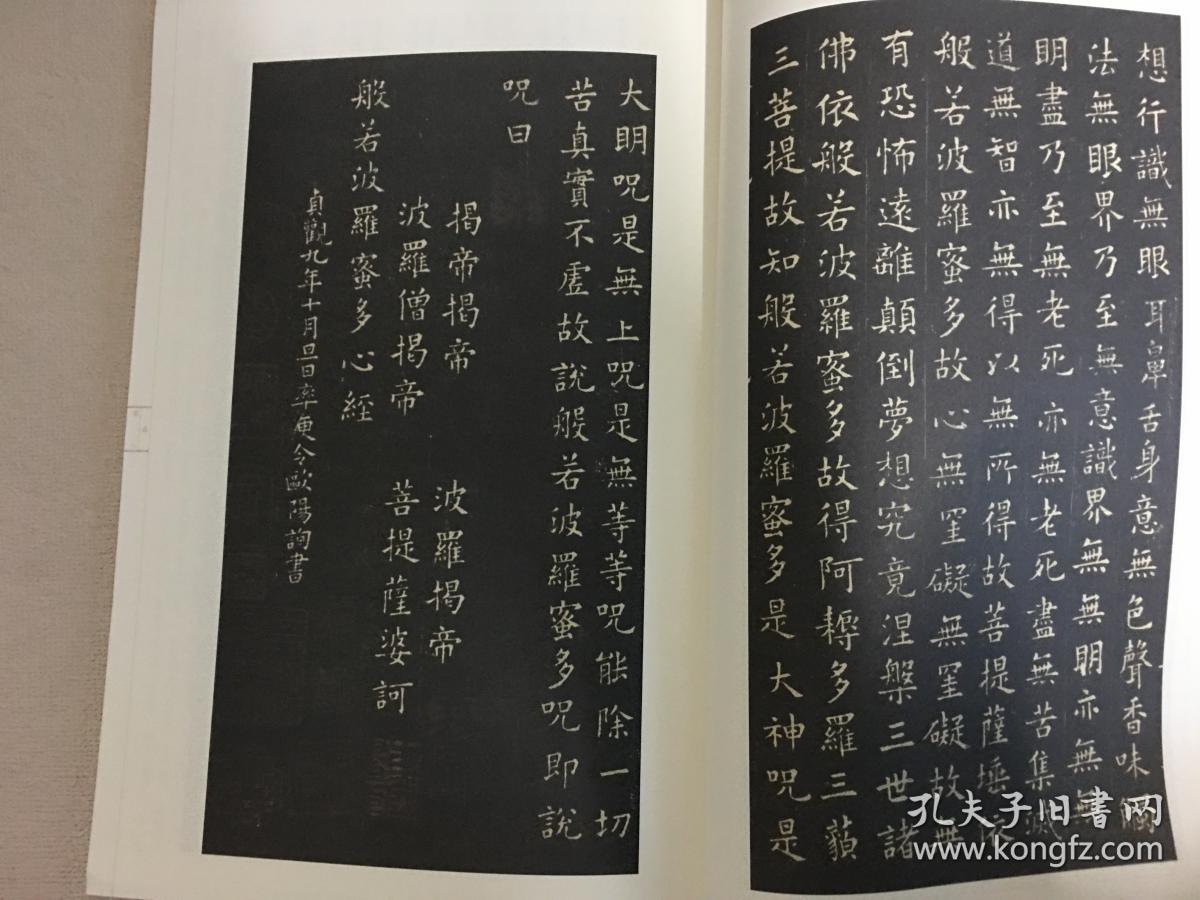 想行識無眼耳鼻舌身意無色聲香味觸
法無眼界乃至無意識界無無明亦無無
明盡乃至無老死亦無老死盡無苦集滅
道無智亦無得以無所得故菩提薩埵依
般若波羅蜜多故心無罣礙無罣礙故無
有恐怖遠離顛倒夢想究竟涅槃三世諸
佛依般若波羅蜜多故得阿耨多羅三藐
三菩提故知般若波羅蜜多是大神呪是
大明呪是無上呪是無等等呪能除一切
苦真實不虛故說般若波羅蜜多呪即說
呪曰
揭帝揭帝 波羅揭帝
波羅僧揭帝 菩提薩婆訶
般若波羅蜜多心經
貞觀九年十月旦日率更令歐陽詢書
孔夫子旧书网
www.kongfz.com